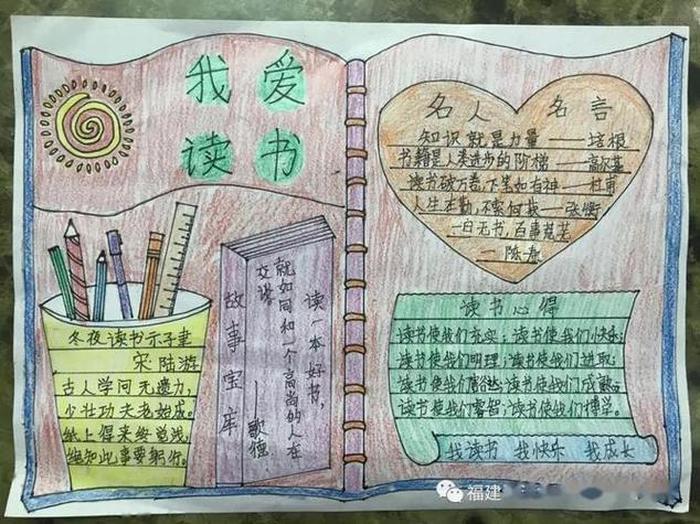 我 爱
读 书
冬夜读书示子聿
宋 陆游
古人学问无遗力,
少壮功夫老始成。
纸上得来终觉浅,
绝知此事要躬行。
故事宝库
读一本好书,
就如同和一个高尚的人在
交谈
——歌德
名人 名言
知识就是力量——培根
书籍是人类进步的阶梯——高尔基
读书破万卷,下笔如有神——杜甫
人生在勤,不索何获——张衡
一日无书,百事荒芜
—陈寿
读书心得
读书使我们充实;读书使我们快乐;
读书使我们明理;读书使我们进取;
读书使我们豁达;读书使我们成熟;
读书使我们睿智;读书使我们博学。
我读书 我快乐 我成长
福建